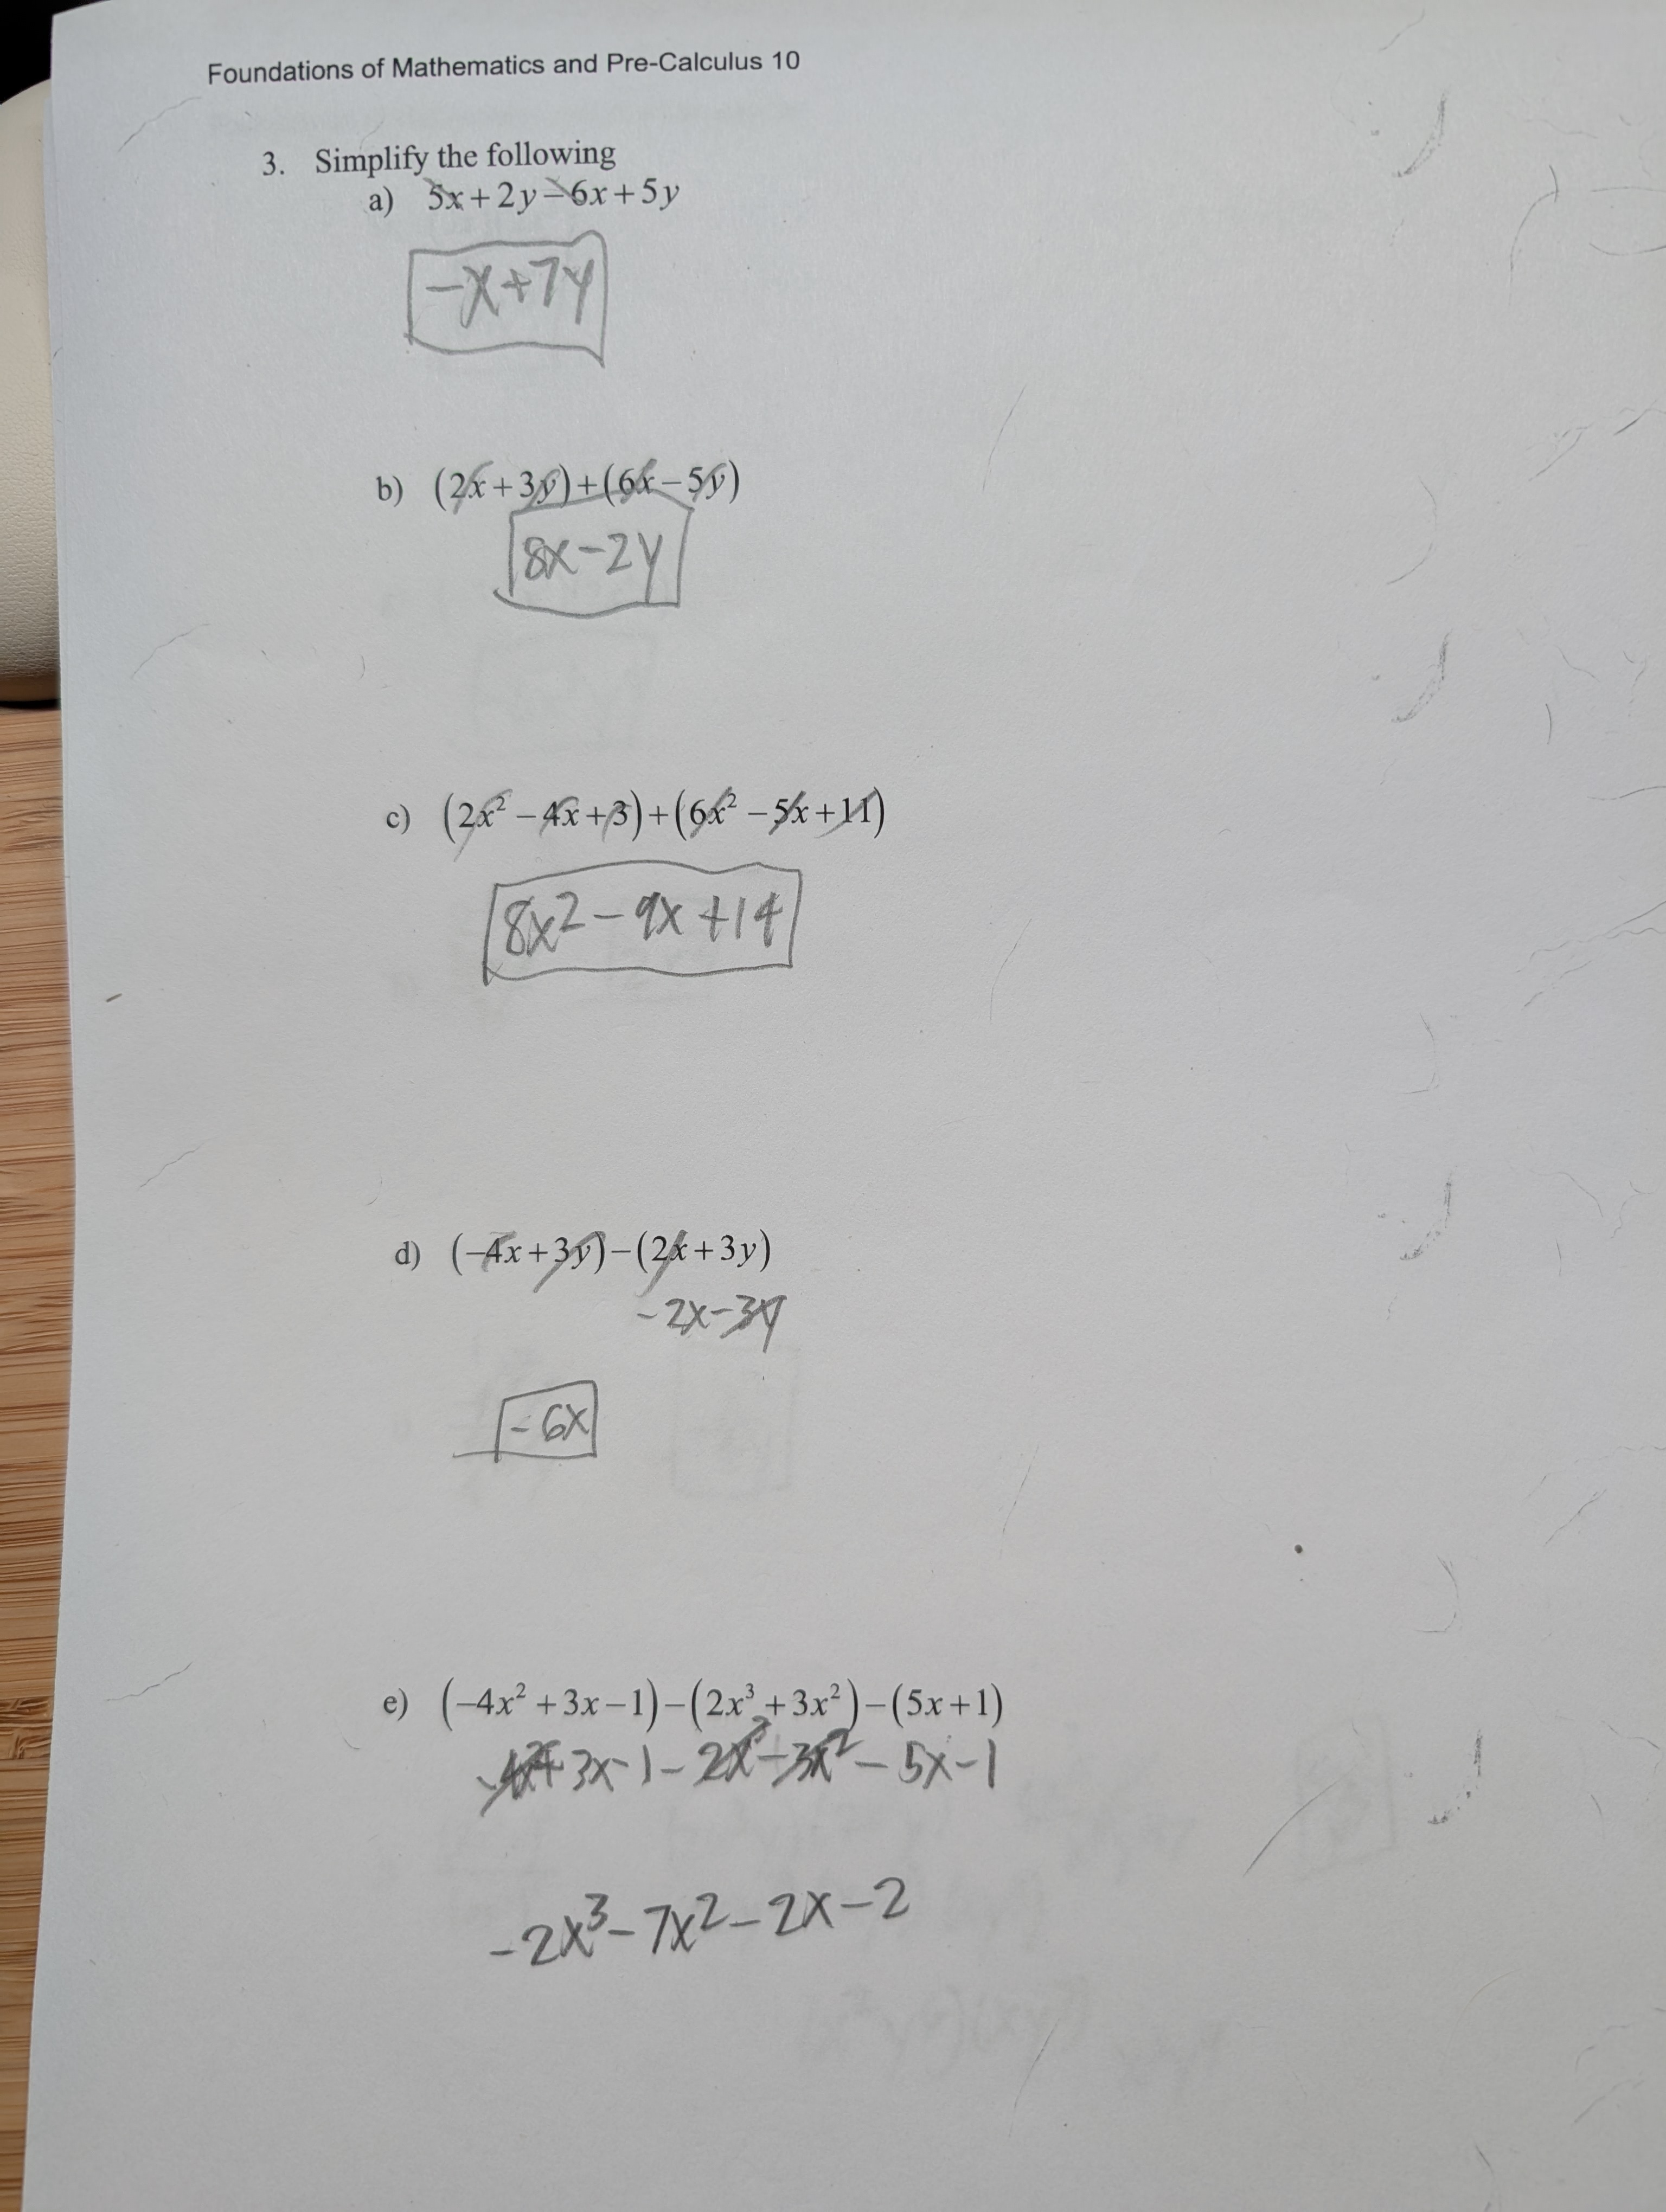 Foundations of Mathematics and Pre-Calculus 10
3. Simplify the following
a) 5x + 2y - 6x + 5y
-x+7y
b) (2x + 3y) + (6x - 5y)
8x-2y
c) (2x² - 4x + 3) + (6x² - 5x + 11)
8x² - 9x +14
d) (-4x + 3y) - (2x + 3y)
-2x-3y
-6x
e) (-4x² + 3x - 1) - (2x³ + 3x²) - (5x + 1)
-4x²+3x-1-2x³-3x²-5x-1
-2x³-7x²-2x-2